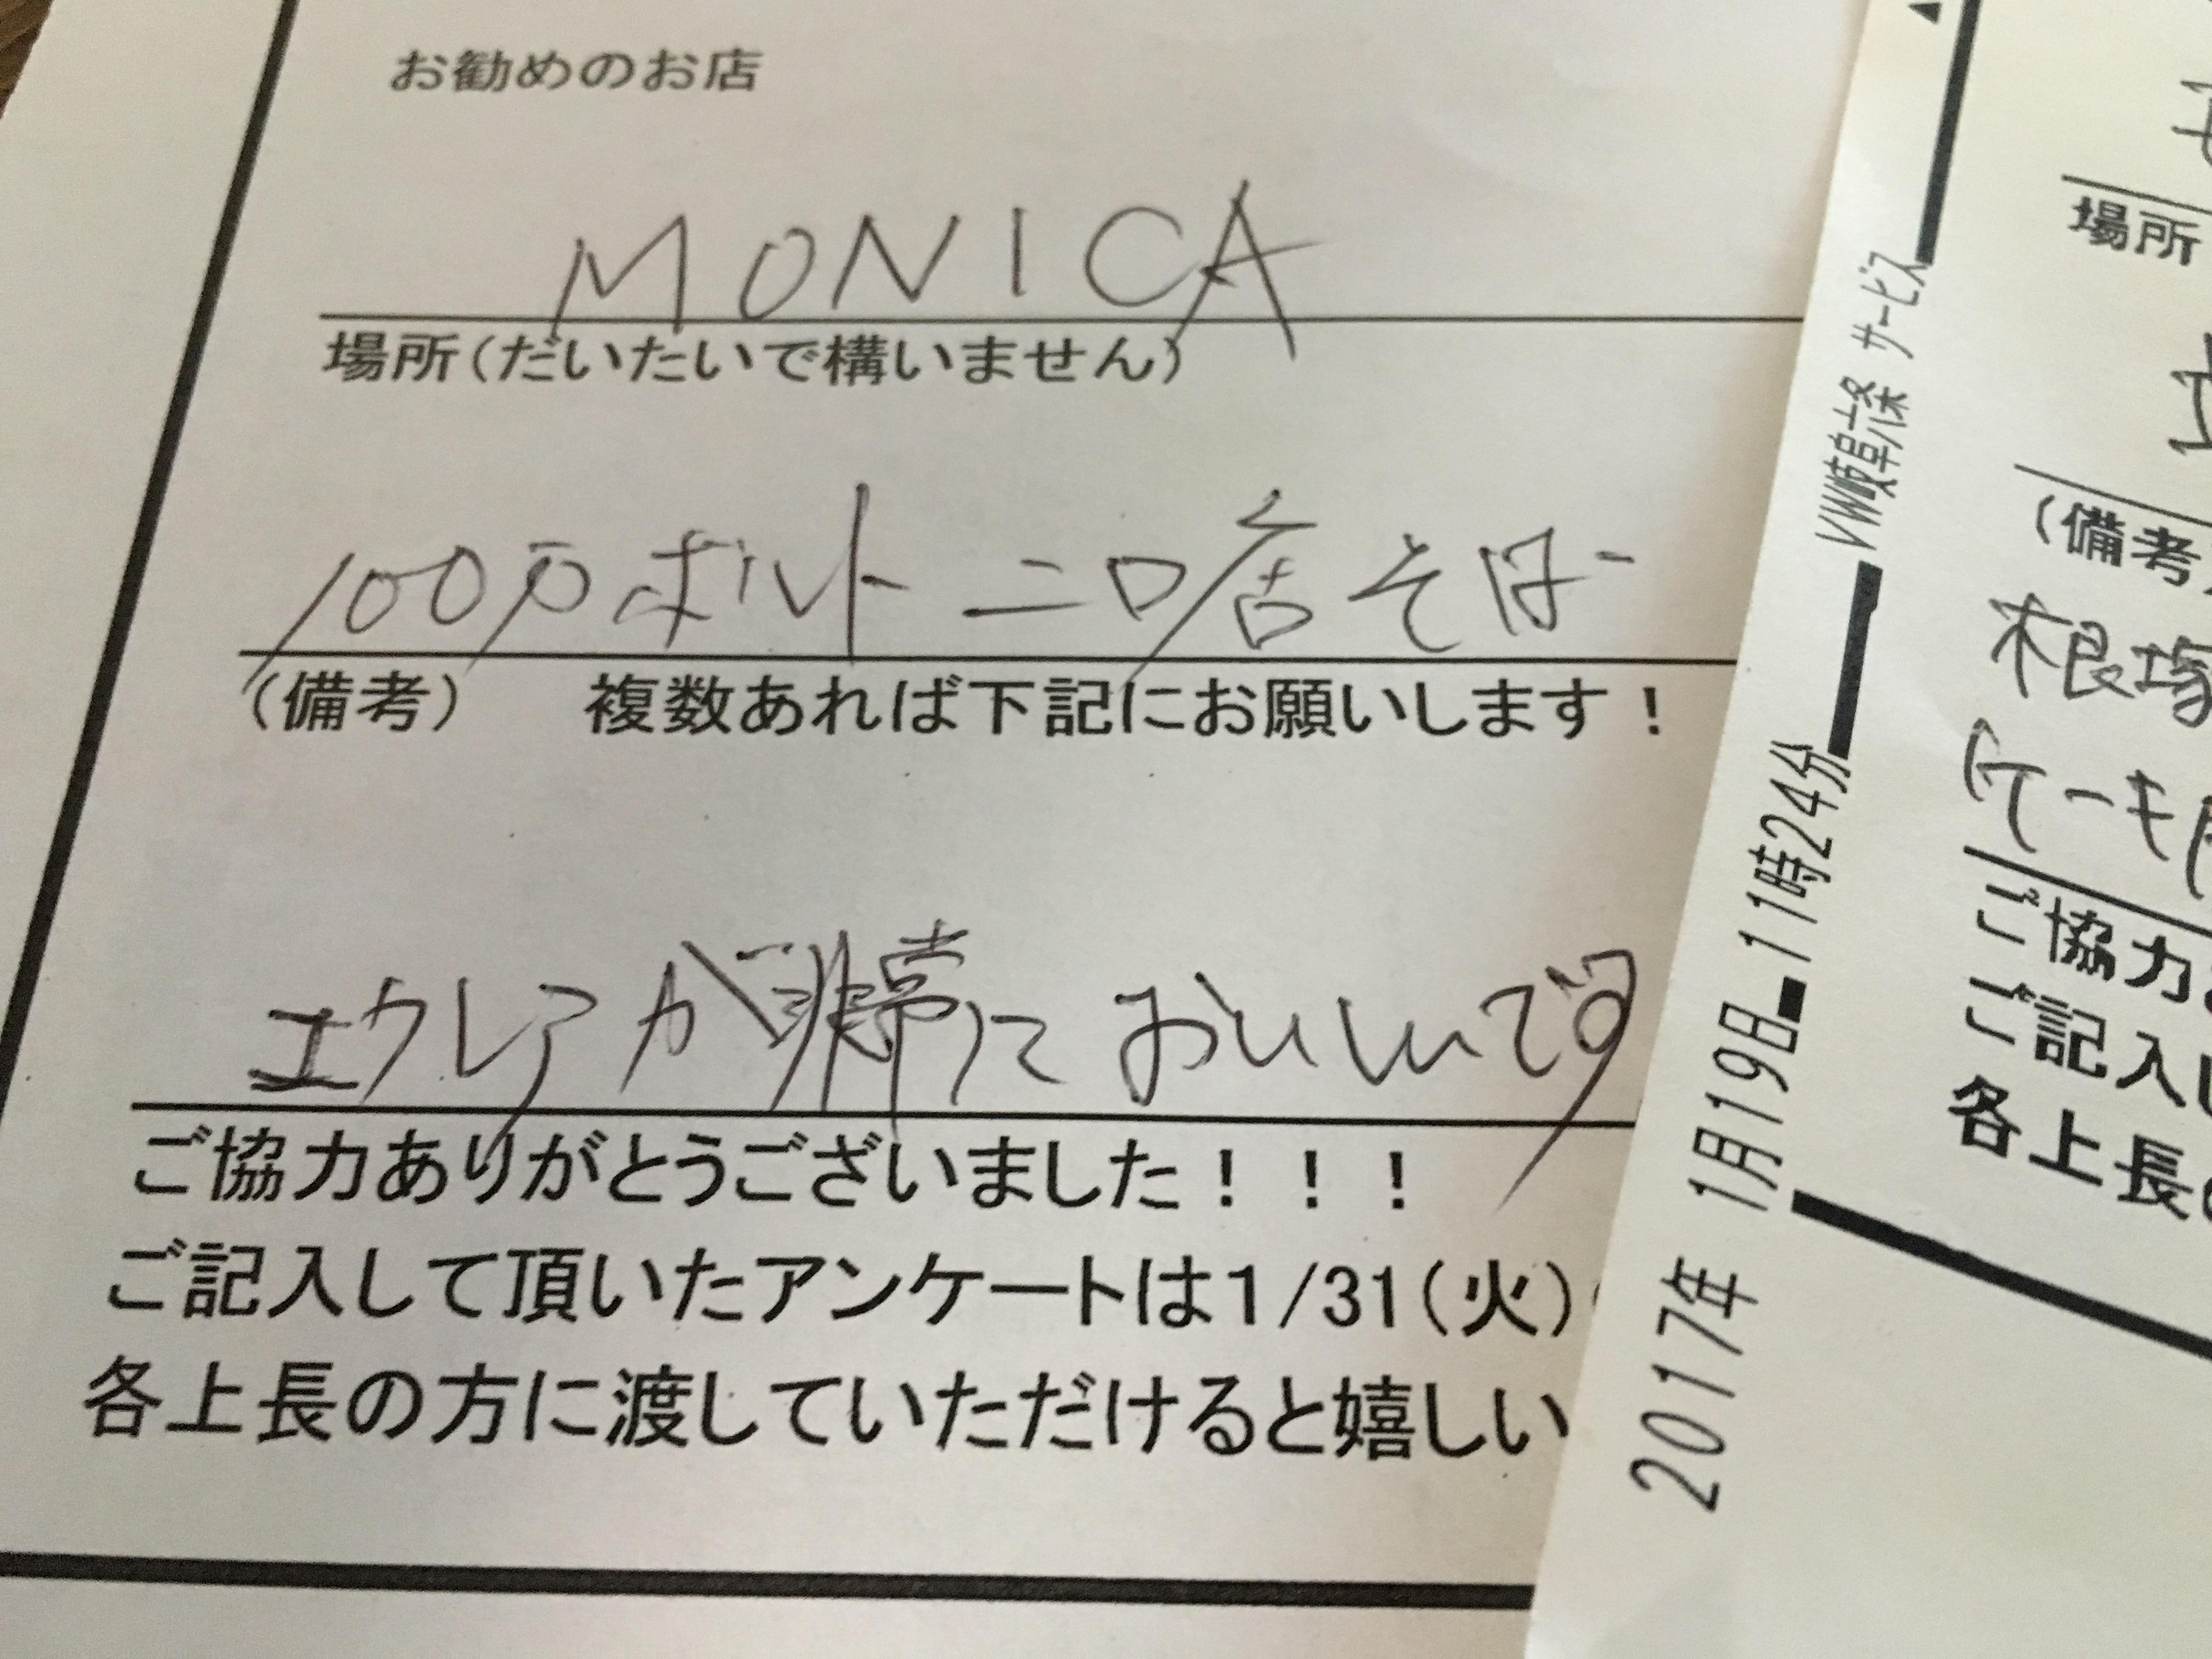 お勧めのお店
MONICA
場所(だいたいで構いません)
100万ボルト 二口店そば
(備考) 複数あれば下記にお願いします!
エクレアが非常においしいです
ご協力ありがとうございました!!!
ご記入して頂いたアンケートは1/31(火)
各上長の方に渡していただけると嬉しい
2017年 1月19日 11時24分 VW岐阜六条 サービス
場所
(備考)
根塚
ケーキ
ご協力
ご記入し
各上長の